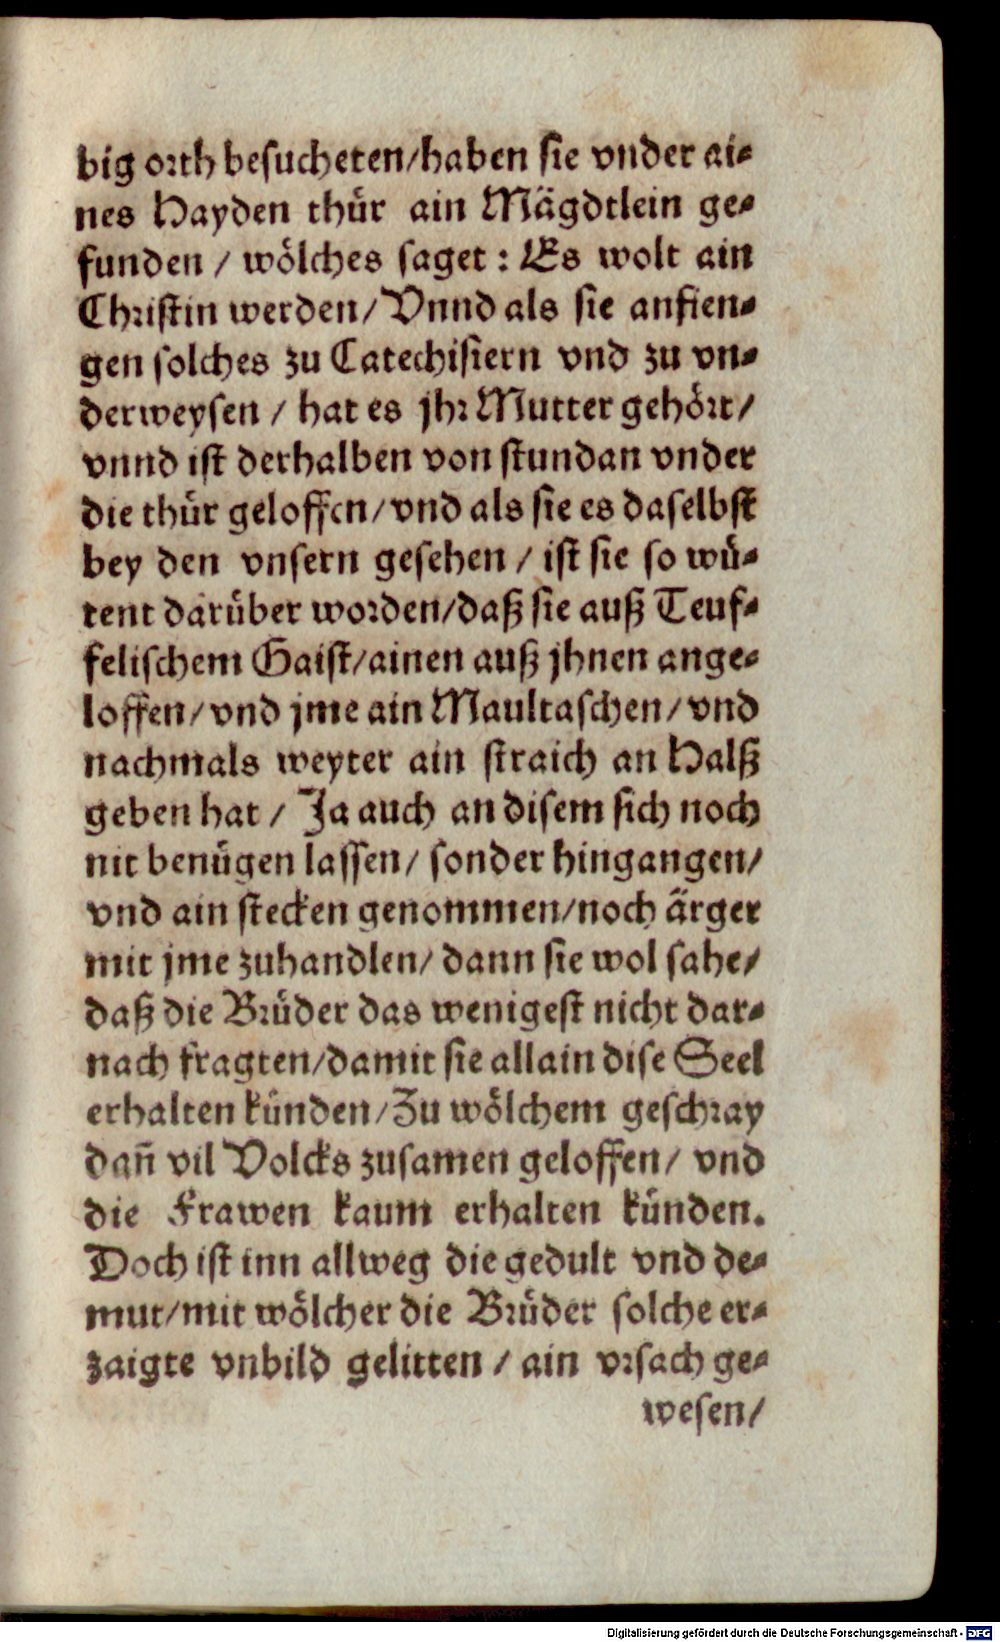 big orth besucheten/haben sie vnder ai⸗
nes Hayden thür ain Mägdtlein ge⸗
funden / wölches saget : Es wolt ain
Christin werden/Vnnd als sie anfien⸗
gen solches zu Catechisiern vnd zu vn⸗
derweysen / hat es jhr Mutter gehört/
vnnd ist derhalben von stundan vnder
die thür geloffen/vnd als sie es daselbst
bey den vnsern gesehen / ist sie so wü⸗
tent darüber worden/daß sie auß Teuf⸗
felischem Gaist/ainen auß jhnen ange⸗
loffen/vnd jme ain Maultaschen/vnd
nachmals weyter ain straich an Halß
geben hat / Ja auch an disem sich noch
nit benügen lassen/ sonder hingangen/
vnd ain stecken genommen/noch ärger
mit jme zuhandlen/ dann sie wol sahe/
daß die Brüder das wenigest nicht dar⸗
nach fragten/damit sie allain dise Seel
erhalten künden/Zu wölchem geschray
dañ vil Volcks zusamen geloffen/ vnd
die Frawen kaum erhalten künden.
Doch ist inn allweg die gedult vnd de⸗
mut/mit wölcher die Brüder solche er⸗
zaigte vnbild gelitten / ain vrsach ge⸗
wesen/
Digitalisierung gefördert durch die Deutsche Forschungsgemeinschaft - DFG